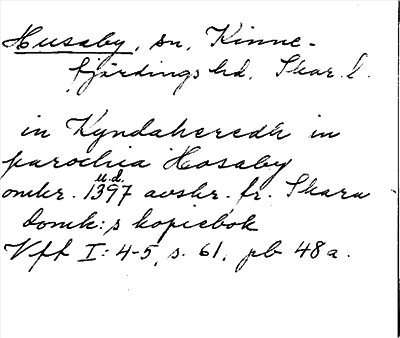 Husaby, sn, Kinne-
fjärdings hd. Skar. l.
in Kyndaheredh in
parochia Hosaby
u.d.
omkr. 1397 avskr. fr. Skara
domk:s kopiebok
Vff I: 4-5, s. 61, pb 48 a.